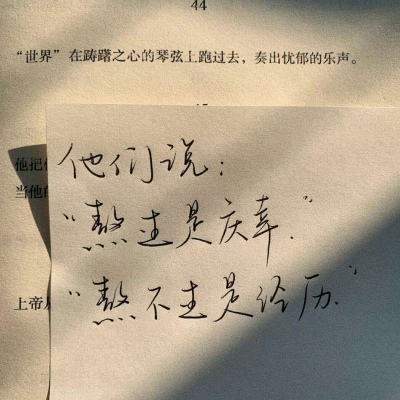 44
“世界”在踌躇之心的琴弦上跑过去，奏出忧郁的乐声。
他把
当他
上帝
他们说：
“熬过是庆幸.”
“熬不过是经历.”